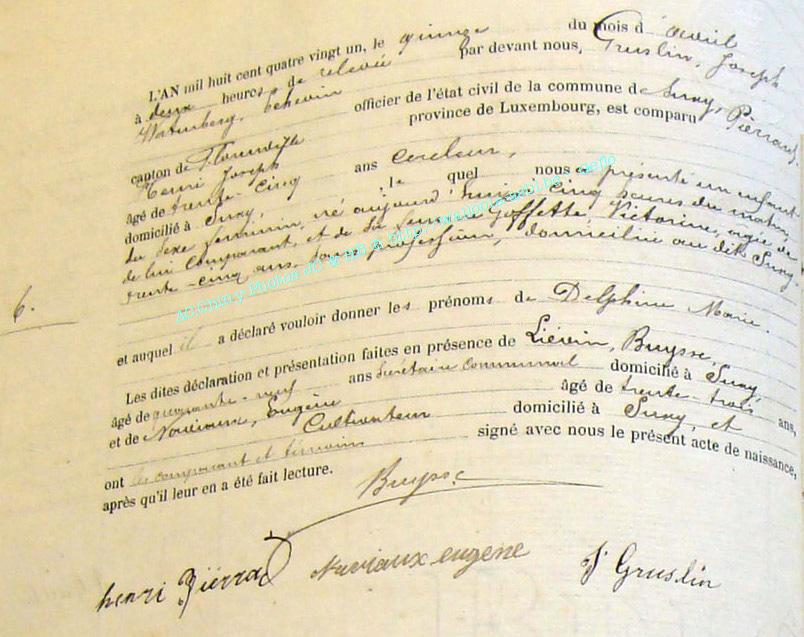 L'AN mil huit cent quatre vingt un, le quinze du mois d'avril
à deux heures de relevée par devant nous, Gruslin, Joseph
Watenberg, Echevin officier de l'état civil de la commune de Suxy,
canton de Florenville province de Luxembourg, est comparu Pierrard,
Henri Joseph
âgé de trente-cinq ans cercleur,
domicilié à Suxy, le quel nous a présenté un enfant
du sexe féminin, né aujourd'hui à cinq heures du matin,
de lui comparant, et de Goffette, Victorine, âgée de
trente-cinq ans, sans profession, domiciliée au dit Suxy.
6.
et auquel il a déclaré vouloir donner les prénoms de Delphine Marie.
Les dites déclaration et présentation faites en présence de Liévin, Buysse,
âgé de quarante-neuf ans Secrétaire communal domicilié à Suxy,
et de Noviaux, Eugène âgé de trente-trois ans,
Cultivateur domicilié à Suxy, et
ont les comparant et témoins signé avec nous le présent acte de naissance,
après qu'il leur en a été fait lecture.
Buysse
henri Piérrad Noviaux eugène J Gruslin